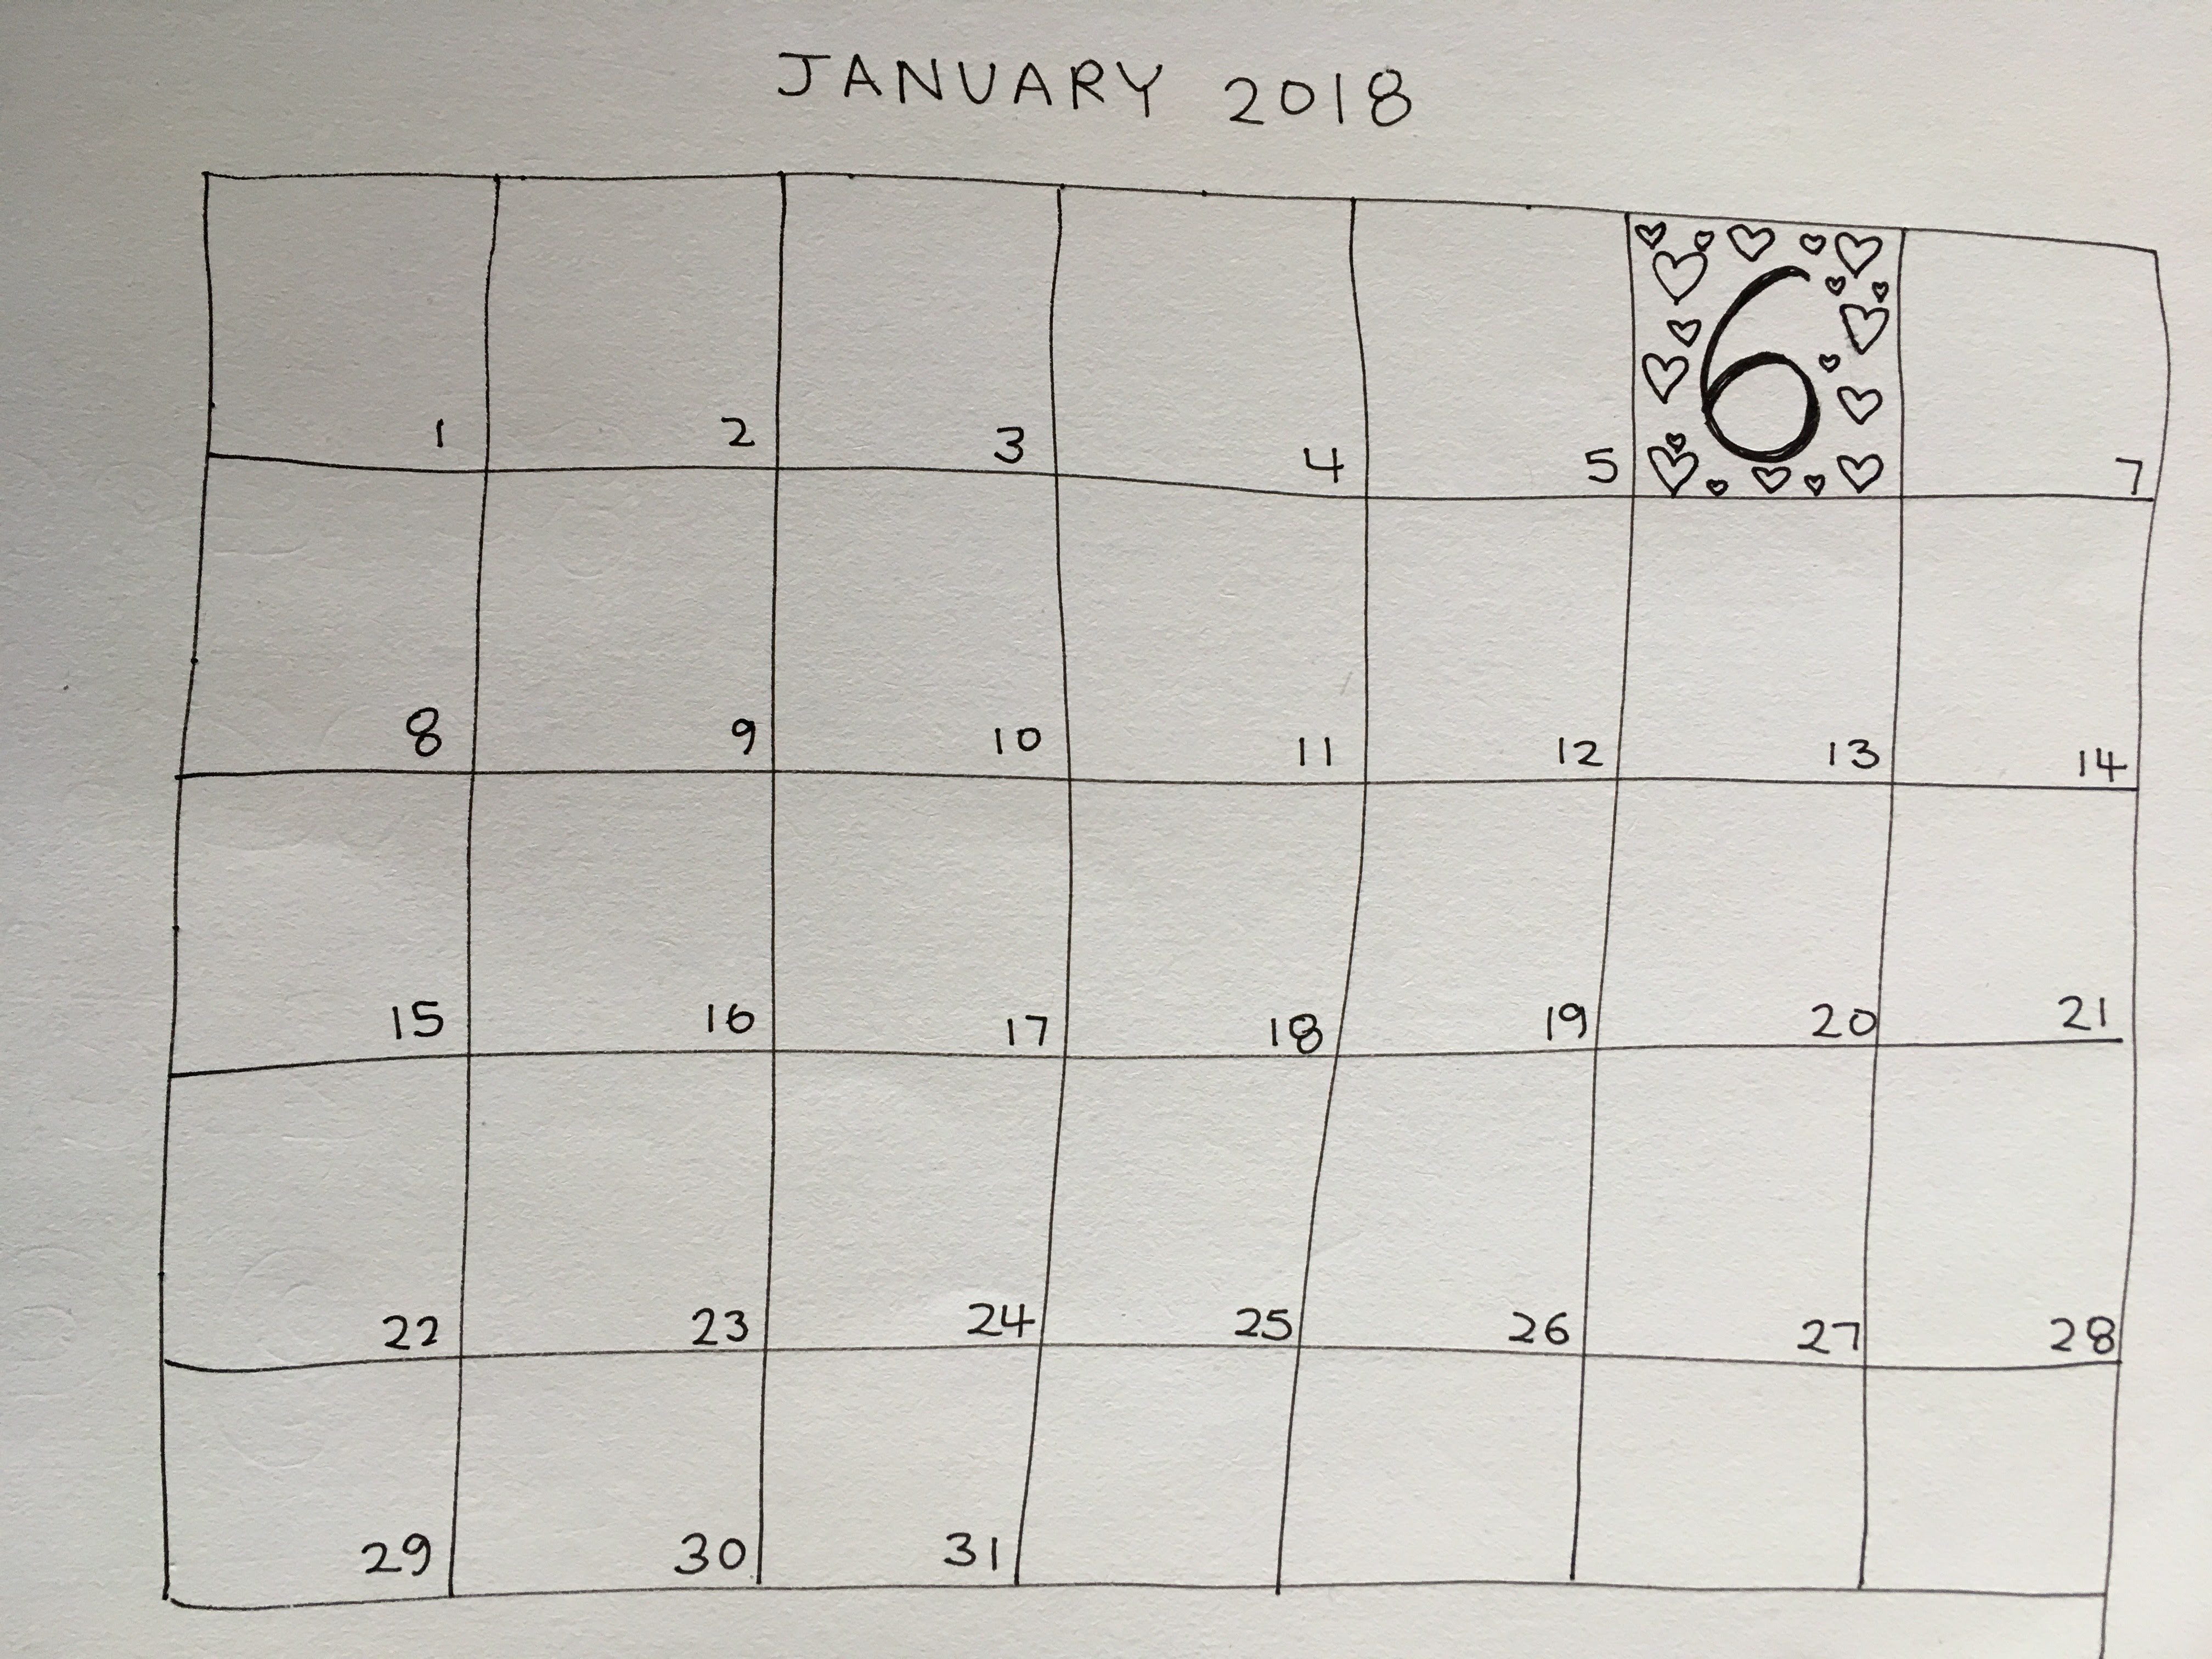 JANUARY 2018
1 2 3 4 5 6 7
8 9 10 11 12 13 14
15 16 17 18 19 20 21
22 23 24 25 26 27 28
29 30 31